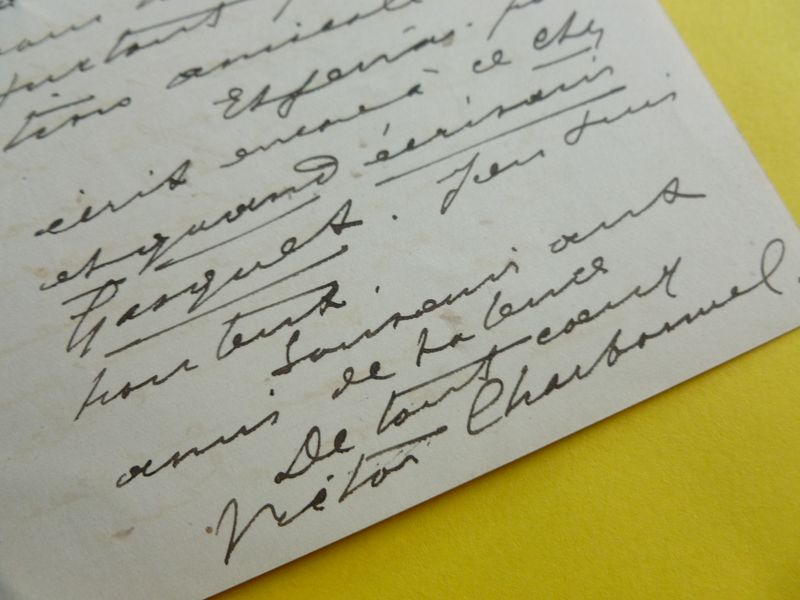 surtout
tions amicales
Et ferais
écrit encore à ce cher
et quand écrirais
Gasquet. J'en suis
honteux.
Souvenir aux
amis de Valence
De tout coeur
Victor Charbonnel.